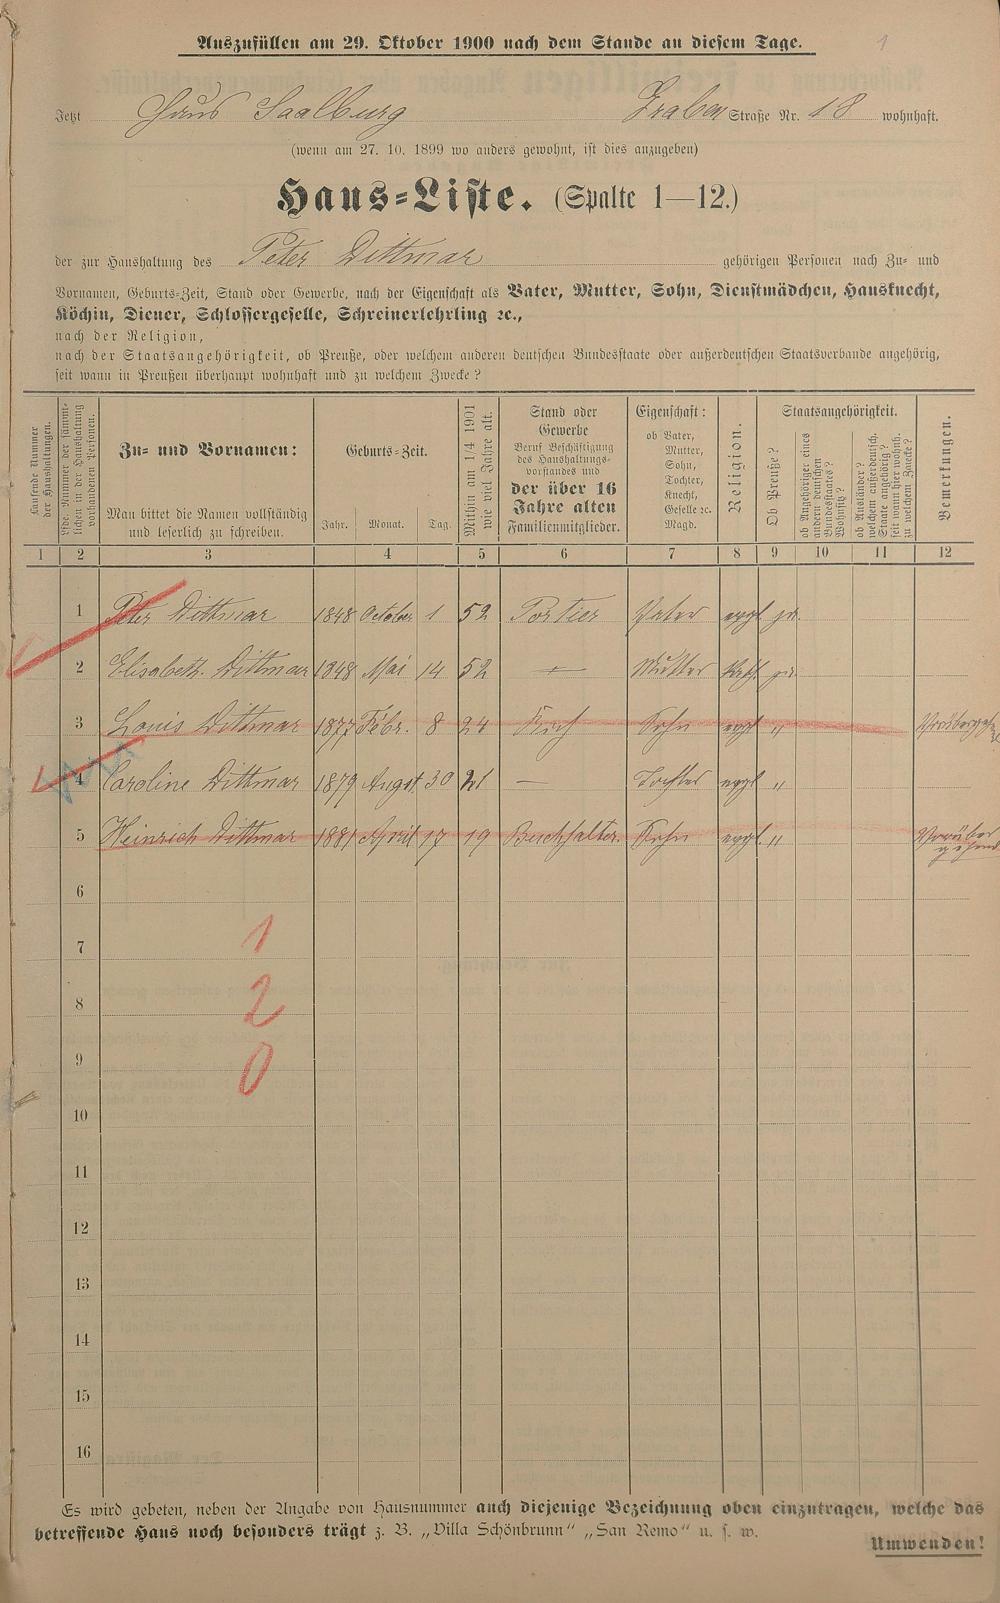 Auszufüllen am 29. Oktober 1900 nach dem Stande an diesem Tage.
1
Jetzt Haus Saalburg Graben Straße Nr. 18 wohnhaft.
(wenn am 27. 10. 1899 wo anders gewohnt, ist dies anzugeben)
Haus=Liste. (Spalte 1—12.)
der zur Haushaltung des Peter Dittmar gehörigen Personen nach Zu- und
Vornamen, Geburts-Zeit, Stand oder Gewerbe, nach der Eigenschaft als Vater, Mutter, Sohn, Dienstmädchen, Hausknecht,
Köchin, Diener, Schlossergeselle, Schreinerlehrling ꝛc.,
nach der Religion,
nach der Staatsangehörigkeit, ob Preuße, oder welchem anderen deutschen Bundesstaate oder außerdeutschen Staatsverbande angehörig,
seit wann in Preußen überhaupt wohnhaft und zu welchem Zwecke?
Laufende Nummer
der Haushaltungen.
Lfde. Nummer der sämmt-
lichen in der Haushaltung
vorhandenen Personen.
Zu- und Vornamen:
Man bittet die Namen vollständig
und leserlich zu schreiben.
Geburts-Zeit.
Jahr. Monat. Tag.
Mithin am 1/4 1901
wie viel Jahre alt.
Stand oder
Gewerbe
Beruf Beschäftigung
des Haushaltungs-
vorstandes und
der über 16
Jahre alten
Familienmitglieder.
Eigenschaft:
ob Vater,
Mutter,
Sohn,
Tochter,
Knecht,
Geselle ꝛc.
Magd.
Religion.
Staatsangehörigkeit.
Ob Preuße?
ob Angehöriger eines
andern deutschen
Bundesstaates?
Wohnsitz?
ob Ausländer?
welchem außerdeutsch.
Staate angehörig?
seit wann hier wohnh.
zu welchem Zwecke?
Bemerkungen.
1 2 3 4 5 6 7 8 9 10 11 12
1 Peter Dittmar 1848 October 1 52 Portier Vater evgl. ja.
2 Elisabeth. Dittmar 1848 Mai 14 52 — Mutter Kath. ja.
3 Louis Dittmar 1877 Febr. 8 24 Koch Sohn evgl "
4 Caroline Dittmar 1879 August 30 21 — Tochter evgl "
5 Heinrich Dittmar 1881 April 17 19 Buchhalter. Sohn evgl. " Vorüber
gehend
6
7
1
8
2
9
0
10
11
12
13
14
15
16
Es wird gebeten, neben der Angabe von Hausnummer auch diejenige Bezeichnung oben einzutragen, welche das
betreffende Haus noch besonders trägt z. B. „Villa Schönbrunn“ „San Remo“ u. s. w.
Umwenden!